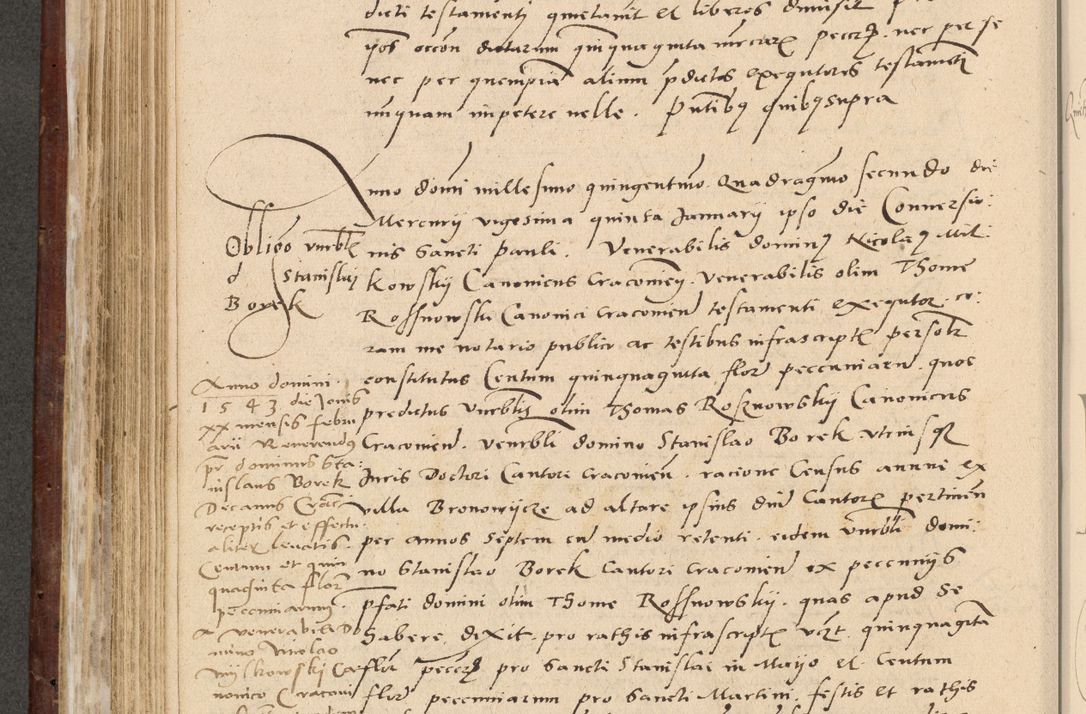 dicti testamenti quietavit et liberos dimisit
ip̄os occōn dictarum quinquaginta mrcar̄ peccn̄ nec per se
nec per quempiā alium p̄dictos exequutores testamēti
unquam impetere velle. Pn̄tibꝫ quibꝫ supra
Anno domi millesimo quingentmo Quadragmo secundo die
Mercurij vigesima quinta Januarij ipso die Conversio:
nis Sancti Pauli. Venerabilis dominꝫ Nicolaꝫ Mil
kowskij Canonicus Cracoviēn. Venerabilis olim Thome
Rossnowski Canonici Cracovien̄ testamenti exequtor co:
ram me notario publico ac testibus infrascriptꝭ person̄lr
constitutus Centum quinquaginta flor̄ peccuniarū quos
predictus Vnrblis olim Thomas Rosznowskij Canonicus
Cracovien̄. Venrbli domino Stanislao Borek vtriusqꝫ
Juris Doctori Cantori Cracovien̄. racione Census annui ex
villa Bronowijcze ad altare ipsius dnj Cantorꝭ pertinēn
per annos septem eū medio retenti. eidem Vnrbli domi:
no Stanislao Borek Cantori Cracovien̄ ex peccunijs
p̄fati domini olim Thome Rossnowskij. quas apud se
habere dixit pro rathis infrascriptꝭ vcꝫt quinquagītā
flor̄ peccn̄ pro Sancti Stanislai in Maijo et Centum
flor̄ peccuniarum pro Sancti Martini festis et rathis
Obligō vnrblꝭ
d Stanislaj
Borek
Anno domini
1543 die Jovis
xx mensis Febru
arii Reverendꝫ
pr̄ dominus Sta:
nislaus Borek
Decanus Cracˢ
receptis et effectu
aliter levatis
Centum et quin
quaginta flor̄
peccuniarum
a Venerabili Do
mino Nicolao
Mijlkowskij Ca
nonico Cracovien̄